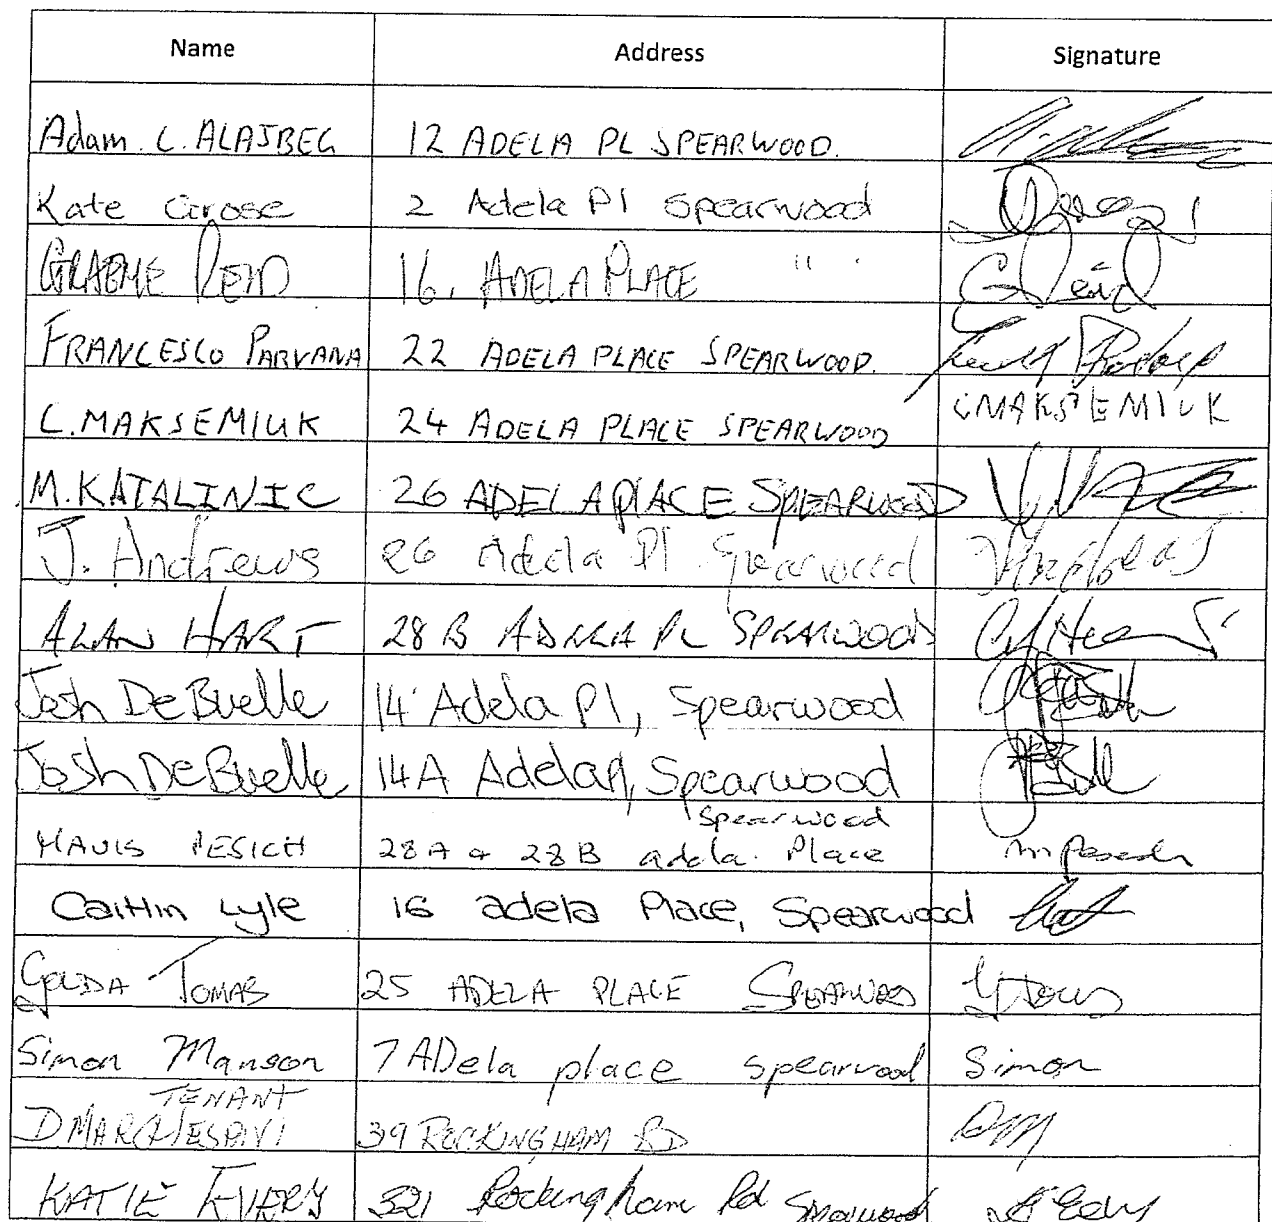 Name Address Signature
Adam. L. ALAJBEG 12 ADELA PL SPEARWOOD.
Kate Grose 2 Adela Pl Spearwood
GRAEME REID 16, ADELA PLACE " " G Reid
FRANCESCO PARVANA 22 ADELA PLACE SPEARWOOD.
C. MAKSEMIUK 24 ADELA PLACE SPEARWOOD C MAKSEMIUK
M. KATALINIC 26 ADELA PLACE SPEARWOOD
J. Andrews 26 Adela Pl Spearwood
ALAN HART 28 B ADELA PL SPEARWOOD
Josh DeBuelle 14 Adela Pl, Spearwood
Josh DeBuelle 14A Adela Pl, Spearwood
Spearwood
MAVIS PESICH 28A & 28B adela. Place
Caitlin Lyle 16 adela Place, Spearwood
GOLDA TOMAS 25 ADELA PLACE SPEARWOOD
Simon Manson 7 ADela place spearwood Simon
TENANT
39 ROCKINGHAM RD DM
KATIE 321 Rockingham Rd Spearwood